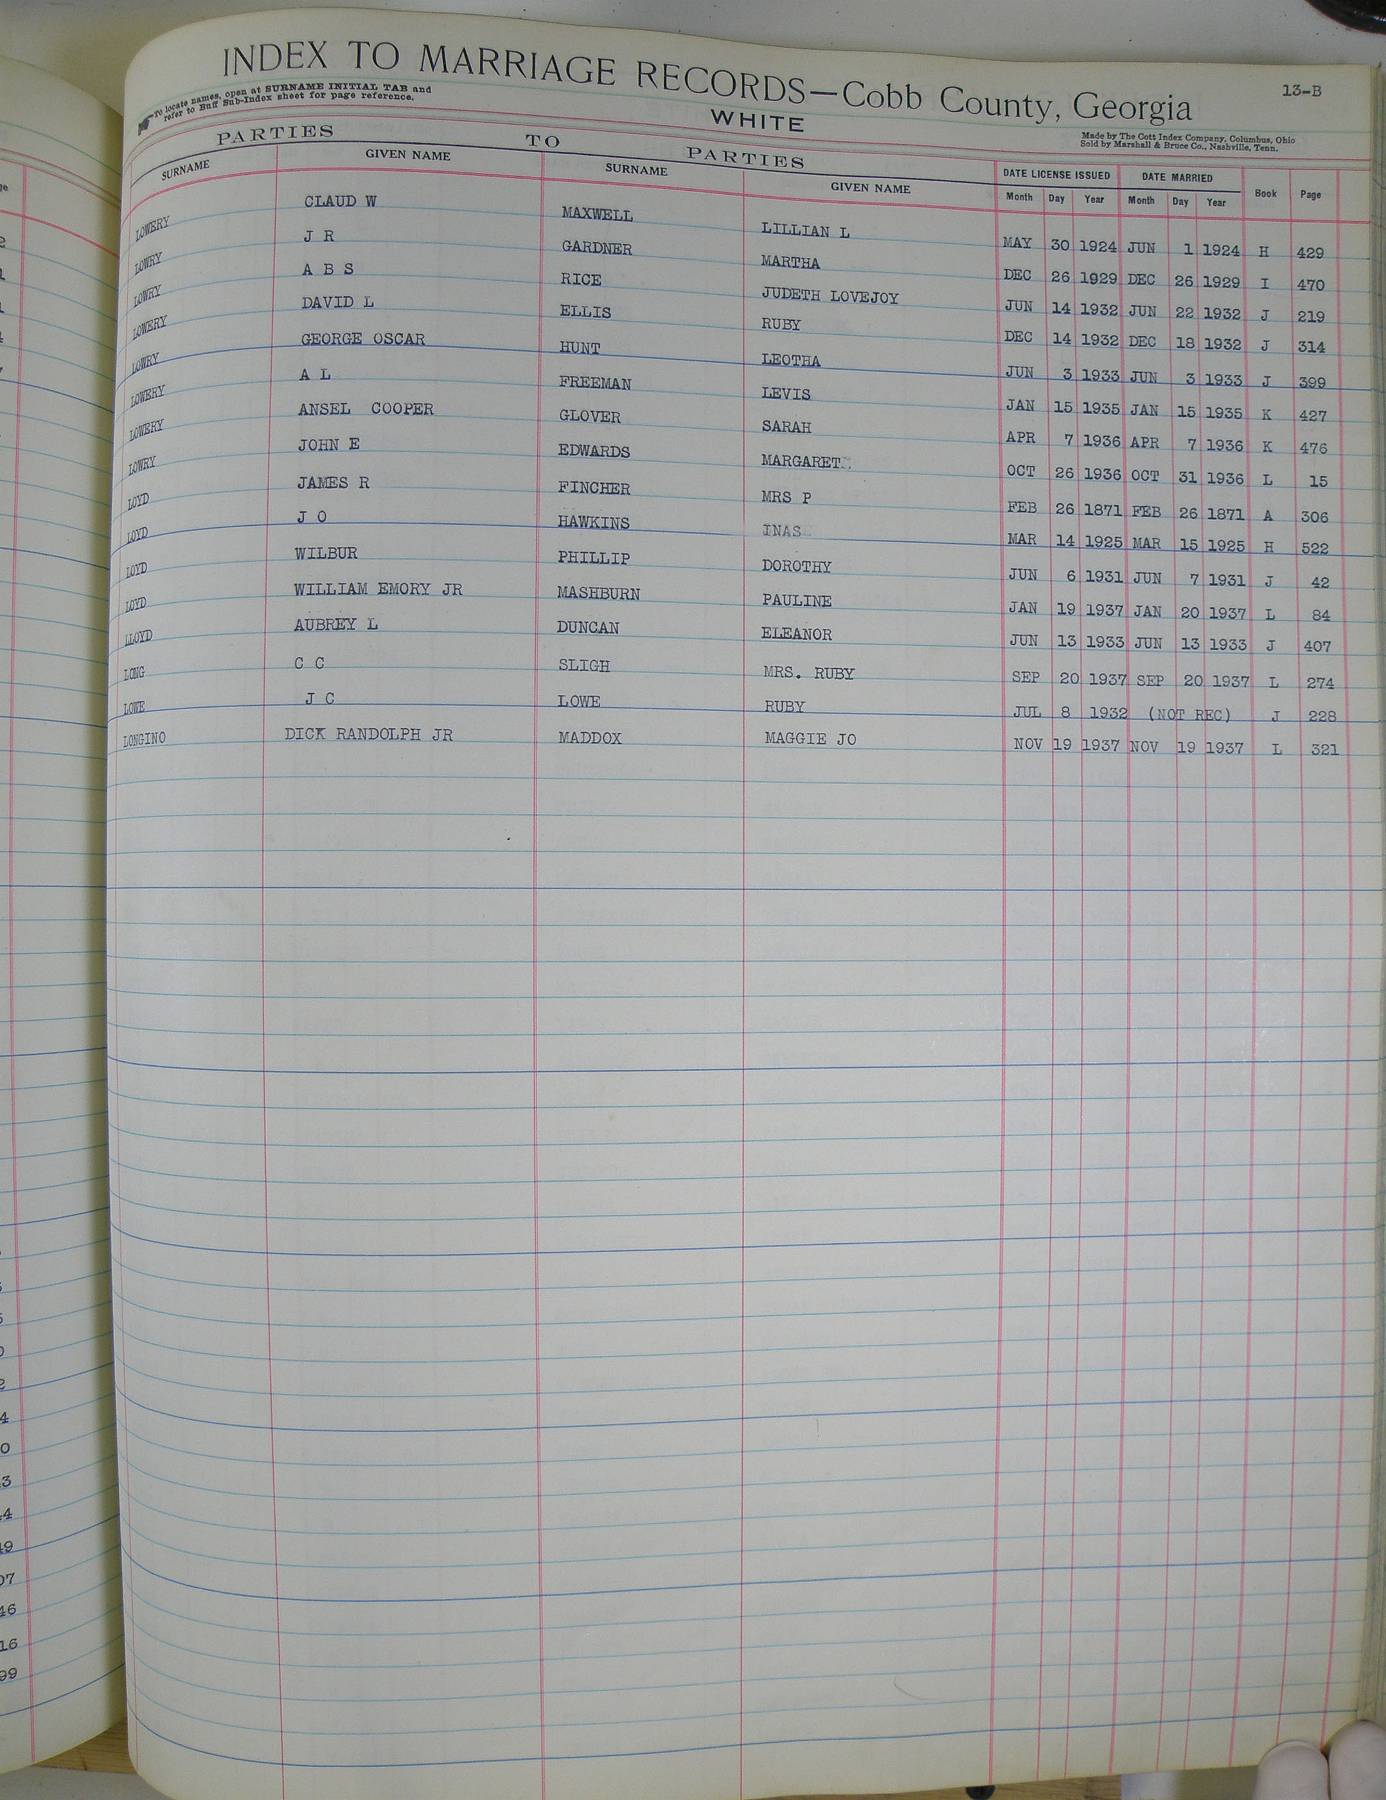 INDEX TO MARRIAGE RECORDS—Cobb County, Georgia 13-B
To locate names, open at SURNAME INITIAL TAB and
refer to Buff Sub-Index sheet for page reference.
WHITE
Made by The Cott Index Company, Columbus, Ohio
Sold by Marshall & Bruce Co., Nashville, Tenn.
PARTIES TO PARTIES
SURNAME GIVEN NAME SURNAME GIVEN NAME DATE LICENSE ISSUED DATE MARRIED Book Page
Month Day Year Month Day Year
LOWERY CLAUD W MAXWELL LILLIAN L MAY 30 1924 JUN 1 1924 H 429
LOWRY J R GARDNER MARTHA DEC 26 1929 DEC 26 1929 I 470
LOWRY A B S RICE JUDETH LOVEJOY JUN 14 1932 JUN 22 1932 J 219
LOWERY DAVID L ELLIS RUBY DEC 14 1932 DEC 18 1932 J 314
LOWRY GEORGE OSCAR HUNT LEOTHA JUN 3 1933 JUN 3 1933 J 399
LOWERY A L FREEMAN LEVIS JAN 15 1935 JAN 15 1935 K 427
LOWERY ANSEL COOPER GLOVER SARAH APR 7 1936 APR 7 1936 K 476
LOWRY JOHN E EDWARDS MARGARET OCT 26 1936 OCT 31 1936 L 15
LOYD JAMES R FINCHER MRS P FEB 26 1871 FEB 26 1871 A 306
LOYD J O HAWKINS INAS MAR 14 1925 MAR 15 1925 H 522
LOYD WILBUR PHILLIP DOROTHY JUN 6 1931 JUN 7 1931 J 42
LOYD WILLIAM EMORY JR MASHBURN PAULINE JAN 19 1937 JAN 20 1937 L 84
LLOYD AUBREY L DUNCAN ELEANOR JUN 13 1933 JUN 13 1933 J 407
LONG C C SLIGH MRS. RUBY SEP 20 1937 SEP 20 1937 L 274
LOWE J C LOWE RUBY JUL 8 1932 (NOT REC) J 228
LONGINO DICK RANDOLPH JR MADDOX MAGGIE JO NOV 19 1937 NOV 19 1937 L 321